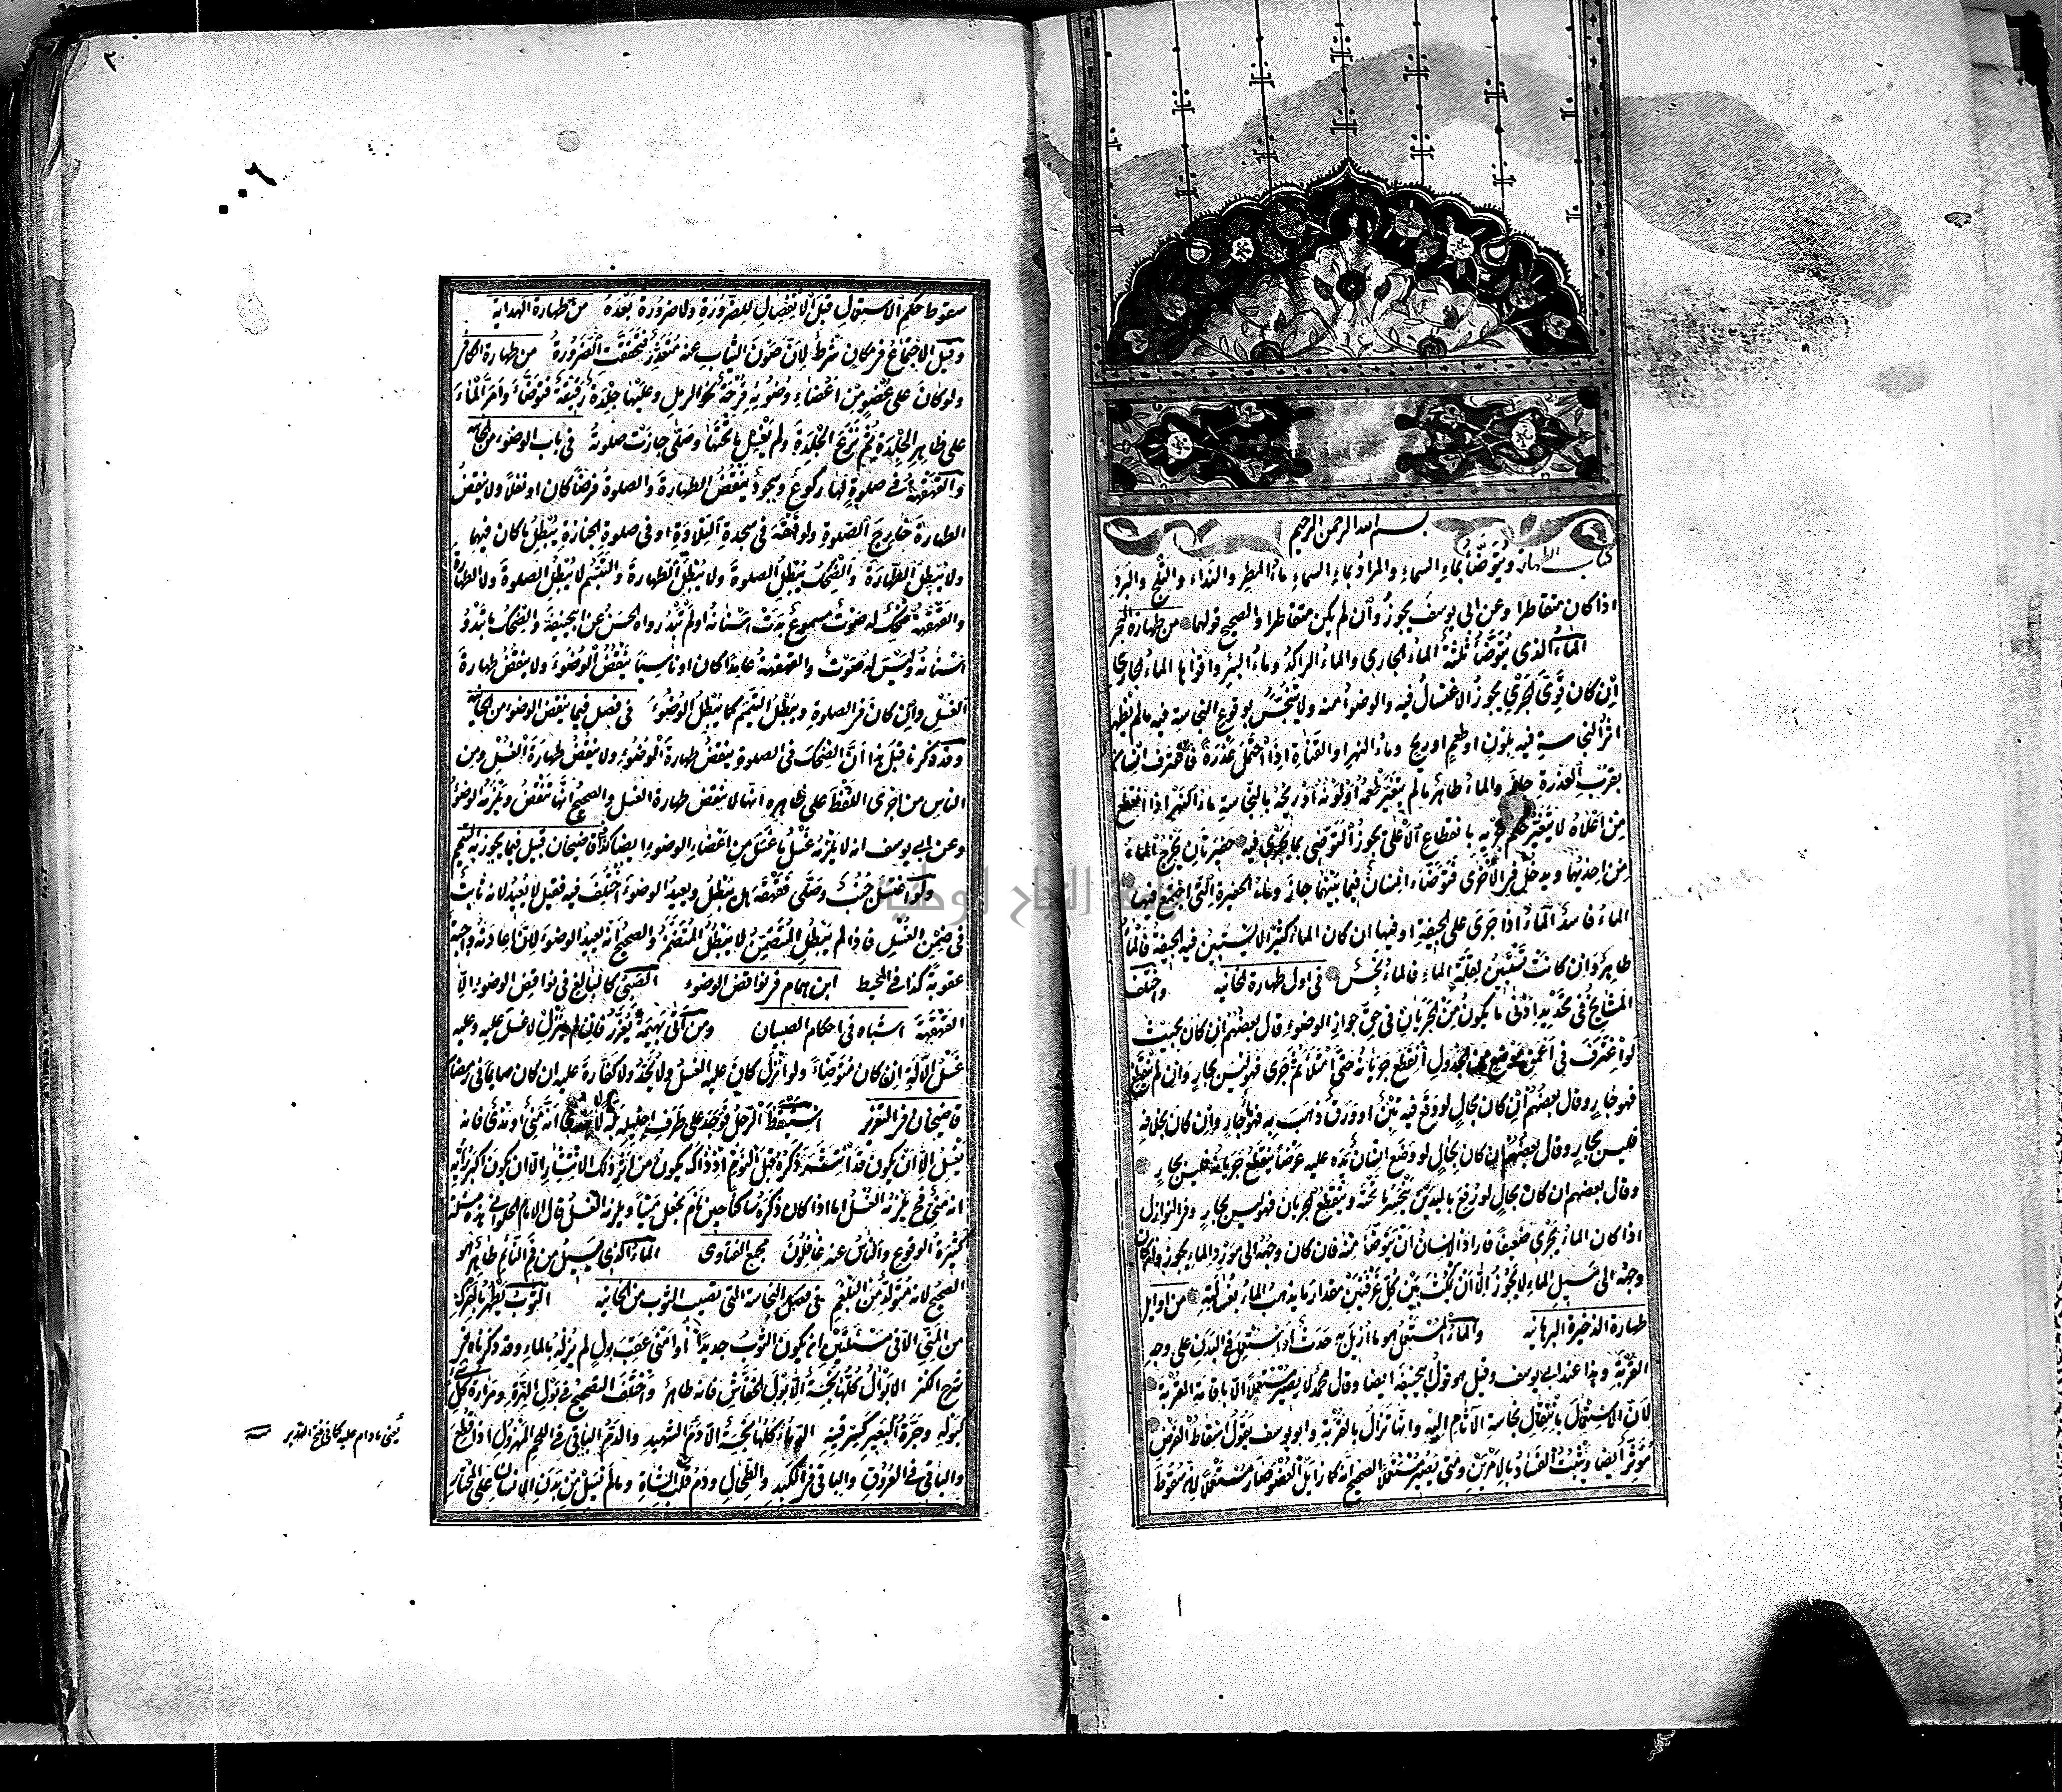 بسم الله الرحمن الرحيم
كتاب الطهارة ويتوضأ بماء السماء والمراد بماء السماء ماء المطر والنداء والثلج والبرد
اذا كان متقاطرا وعن ابى يوسف يجوز وان لم يكن متقاطرا والصحيح قولهما من طهارة
الماء الذى يتوضأ ثلثة الماء الجارى والماء الراكد وماء البئر واقواها الماء الجارى
ان كان قوى الجرى يجوز الاغتسال فيه والوضوء منه ولا يتنجس بوقوع النجاسة فيه مالم يظهر
اثر النجاسة فيه بلون او طعم او ريح وماء النهر او القناة اذا احتمل عذرة فاغترف انسان
بقرب العذرة جاز والماء طاهر مالم يتغير طعمه او لونه او ريحه بالنجاسة ماء النهر اذا انقطع
من اعلاه لا يتغير حكم جريه بانقطاع الاعلى يجوز التوضى بما يجرى فيه حفيرتان يخرج الماء
من احديهما ويدخل فى الاخرى فتوضاء انسان فيما بينهما جاز وماء الحفيرة التى اجتمع فيها
الماء فاسد الماء اذا جرى على الجيفة او فيها ان كان الماء كثيرا لا يستبين فيه الجيفة فالماء
طاهر وان كانت تستبين لقلة الماء فالماء نجس فى اول طهارة الخانيه واختلف
المشايخ فى تحديد ادنى ما يكون من الجريان فى حق جواز الوضوء قال بعضهم ان كان بحيث
لو اغترف فى اعمق موضع من الجدول انقطع جريانه حتى امتلأ ثم جرى فهو ليس بجار وان لم ينقطع
فهو جار وقال بعضهم ان كان بحال لو وقع فيه تبن او ورق ذهب به فهو جار وان كان بخلافه
فليس بجار وقال بعضهم ان كان بحال لو وضع انسان يده عليه عرضا ينقطع جريانه فليس بجار
وقال بعضهم ان كان بحال لو رفع باليدين ينحسر ما تحته وينقطع الجريان فهو ليس بجار وفى النوازل
اذا كان الماء يجرى ضعيفا فاراد الانسان ان يتوضأ منه فان كان وجهه الى مورد الماء يجوز وان كان
وجهه الى مسيل الماء لا يجوز الا ان يمكث بين كل غرفتين مقدار ما يذهب الماء بغسالته من اوايل
طهارة الذخيرة البرهانيه والماء المستعمل هو ما ازيل به حدث او استعمل فى البدن على وجه
القربة وهذا عند ابى يوسف وقيل هو قول ابى حنيفة ايضا وقال محمد لا يصير مستعملا الا باقامة القربة
لان الاستعمال بانتقال نجاسة الآثام اليه وانها تزال بالقربة وابو يوسف يقول اسقاط الفرض
مؤثر ايضا ويثبت الفساد بالامرين ومتى يصير مستعملا الصحيح انه كما زايل العضو صار مستعملا لان سقوط
سقوط حكم الاستعمال قبل الانفصال للضرورة ولا ضرورة بعده من طهارة الهداية
وقيل الاجتماع فى مكان شرط لان صون الثياب عنه متعذر فتحققت الضرورة من طهارة الكافى
ولو كان على عضو من اعضاء وضوئه قرحة نحو الدمل وعليها جلدة رقيقة فتوضأ وامر الماء
على ظاهر الجلدة ثم نزع الجلدة ولم يغسل ما تحتها وصلى جازت صلوته فى باب الوضوء من الخانيه
والقهقهة فى صلوة لها ركوع وسجود ينقض الطهارة والصلوة فرضا كان او نفلا ولا ينقض
الطهارة خارج الصلوة ولو قهقه فى سجدة التلاوة او فى صلوة الجنازة يبطل ما كان فيها
ولا يبطل الطهارة والضحك يبطل الصلوة ولا يبطل الطهارة والتبسم لا يبطل الصلوة ولا الطهارة
والقهقهة ضحك له صوت مسموع بدت اسنانه او لم تبد رواه الحسن عن ابى حنيفة والضحك ما يبدو
اسنانه وليس له صوت والقهقهة عامدا كان او ناسيا ينقض الوضوء ولا ينقض طهارة
الغسل وان كان فى الصلوة ويبطل التيمم كما يبطل الوضوء فى فصل فيما ينقض الوضوء من الخانيه
وقد ذكرنا قبل هذا ان الضحك فى الصلوة ينقض طهارة الوضوء ولا ينقض طهارة الغسل ومن
الناس من اجرى اللفظ على ظاهره انها لا ينقض طهارة الغسل والصحيح انها تنقض ويلزمه الوضوء
وعن ابى يوسف انه لا يلزمه غسل ما غسل من اعضاء الوضوء ايضا كذا قاضيخان قبيل فيما يجوز به التيمم
ولو اغتسل جنب وصلى فقهقه هل يبطل ويعيد الوضوء اختلف فيه فقيل لا يعيد لانه ثابت
فى ضمن الغسل فاذا لم يبطل المتضمن لا يبطل المتضمن والصحيح انه يعيد الوضوء لان اعادته واجبة
عقوبة كذا فى المحيط ابن همام فى نواقض الوضوء الصبى كالبالغ فى نواقض الوضوء الا
القهقهة اشباه فى احكام الصبيان ومن اتى بهيمة يعزر فان لم ينزل لا غسل عليه وعليه
غسل الآلة ان كان متوضأ ولو انزل كان عليه الغسل ولا يحد ولا كفارة عليه ان كان صائما فى رمضان
قاضيخان فى التعزير استيقظ الرجل فوجد على طرف احليله بلة لا يدرى انه منى او مذى فانه
يغسل الا ان يكون قد انتشر ذكره قبل النوم اذ ذاك يكون من اثر ذلك الانتشار الا ان يكون اكبر رأيه
انه منى فح يلزمه الغسل اما اذا كان ذكره ساكنا حين نام يجعل منيا ويلزمه الغسل قال الامام الحلوانى هذه مسئلة
كثيرة الوقوع والناس عنه غافلون مجمع الفتاوى الماء الذى يسيل من فم النائم طاهر هو
الصحيح لانه متولد من البلغم فى فصل النجاسة التى تصيب الثوب من الخانيه الثوب يطهر بالفرك
من المنى الا فى مسئلتين ان يكون الثوب جديدا او امنى عقيب بول لم يزله بالماء وقد ذكرناه فى
شرح الكنز الابوال كلها نجسة الا بول الخفاش فانه طاهر واختلف التصحيح فى بول الهرة ومرارة كل شئ
كبوله وجرة البعير كسرقينه الدماء كلها نجسة الا دم الشهيد والدم الباقى فى اللحم المهزول اذا قطع
والباقى فى العروق والباقى فى الكبد والطحال ودم قلب الشاة وما لم يسل من بدن الانسان على المختار
يعنى مادام عليه كما فى فتح القدير
جامعة النجاح الوطنية